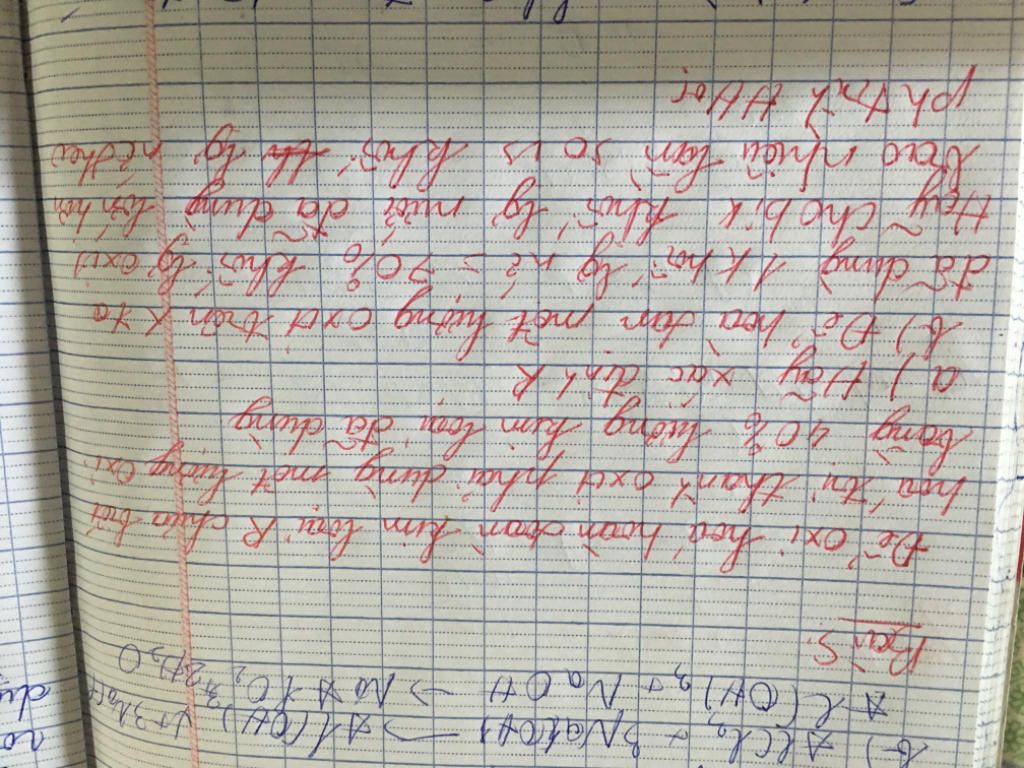 b) AlCl₃ + 3NaOH → Al(OH)₃ ↓ + 3NaCl
Al(OH)₃ + NaOH → NaAlO₂ + 2H₂O
Bài 5:
Để oxi hoá hoàn toàn kim loại R chưa biết
hoá trị thành oxit phải dùng một lượng oxi
bằng 40% lượng kim loại đã dùng
a) Hãy xác định R
b) Để hoà tan một lượng oxit trên
đã dùng 1 khối lg = 70% khối lg oxit
Hãy cho bik khối lg đã dùng lớn hơn
bao nhiêu lần so vs khối lg